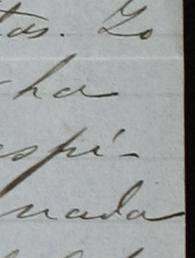 tas. Lo
cha
espi-
nada